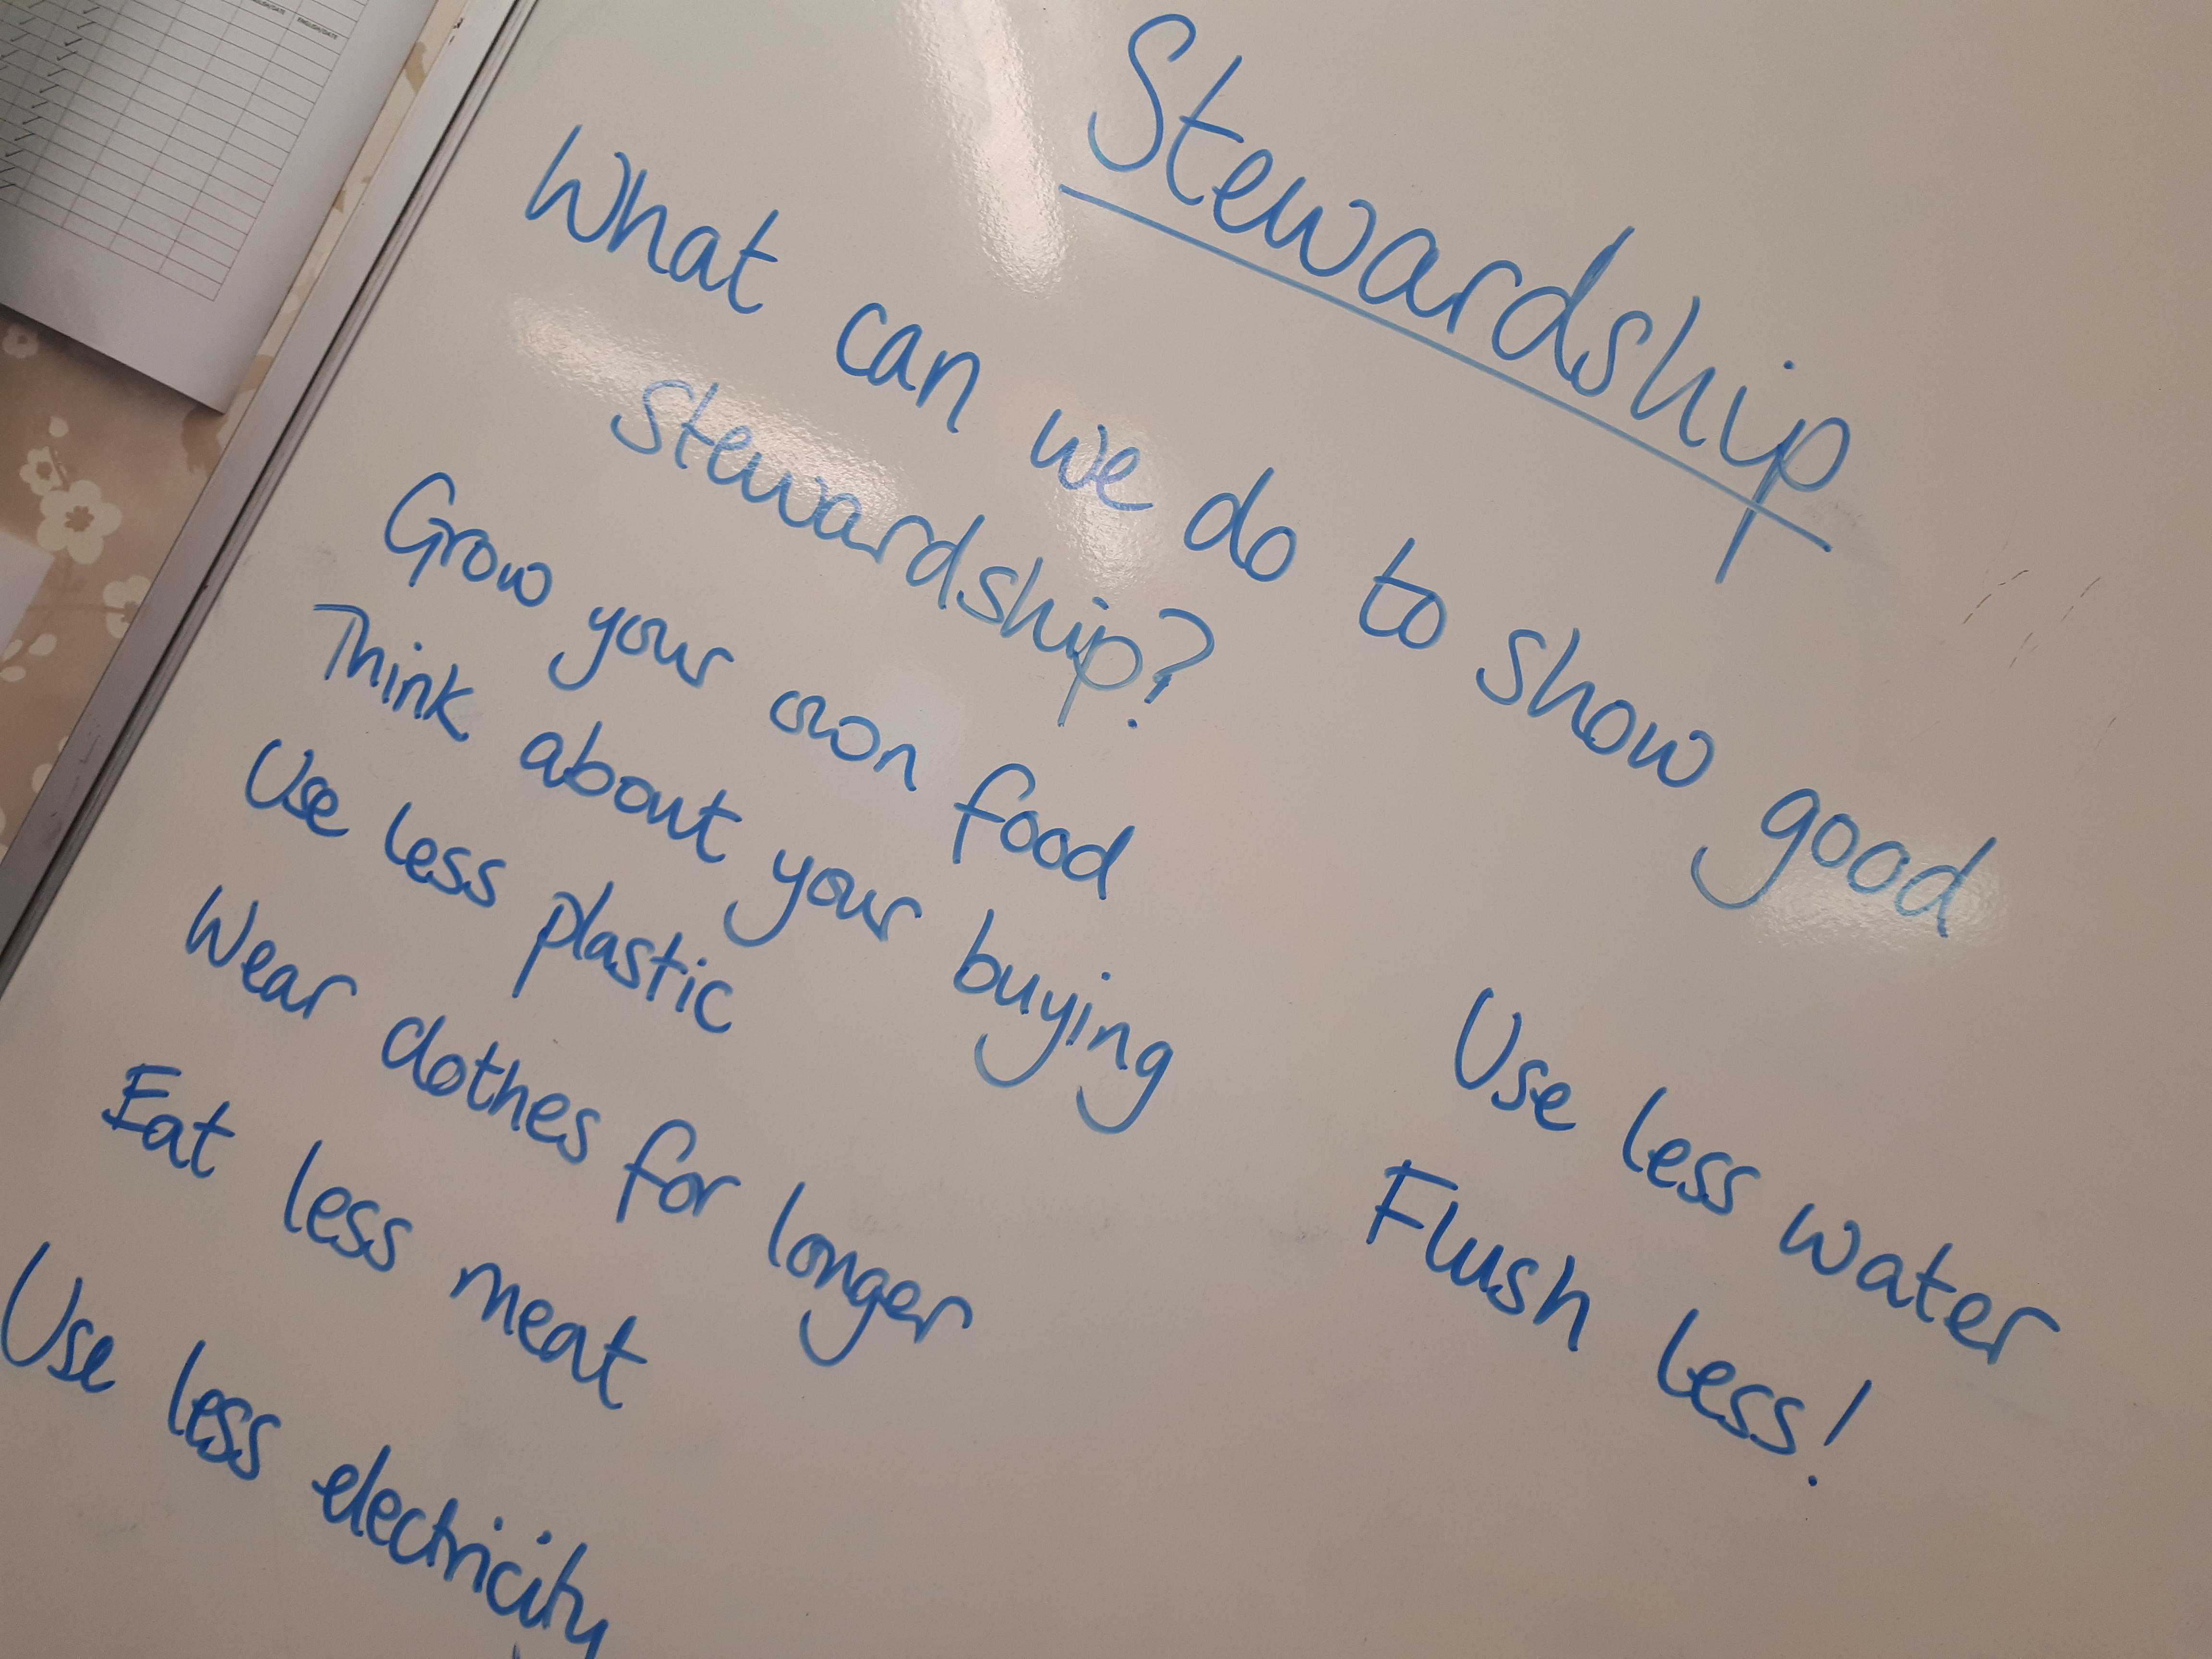 Stewardship
What can we do to show good
Stewardship?
Grow your own food
Think about your buying
Use less plastic
Wear clothes for longer
Eat less meat
Use less electricity
Use less water
Flush less!
ENGLISH/DATE